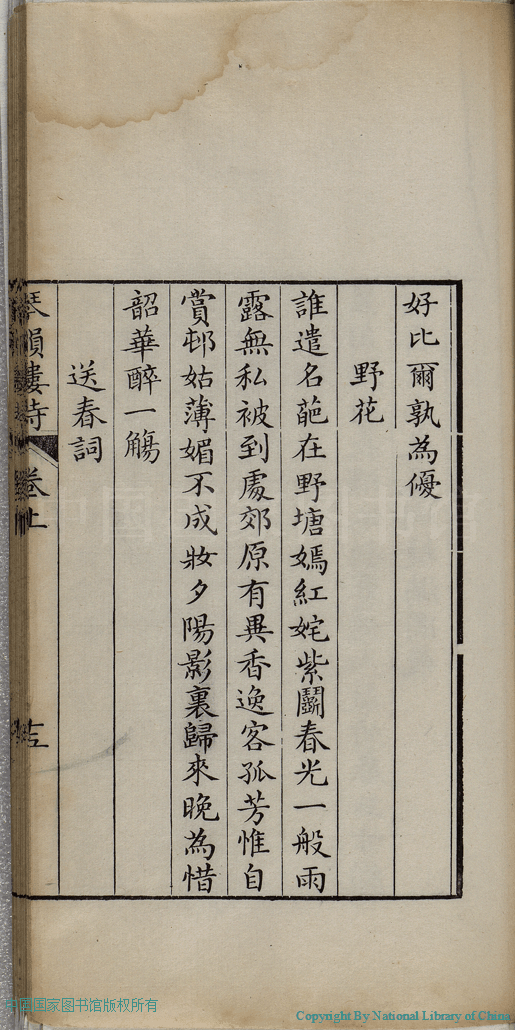 好比爾孰為優
野花
誰遣名葩在野塘嫣紅姹紫鬬春光一般雨
露無私被到處郊原有異香逸客孤芳惟自
賞邨姑薄媚不成妝夕陽影裏歸來晚為惜
韶華醉一觴
送春詞
琴韻樓詩 卷上
中国国家图书馆版权所有
Copyright By National Library of China